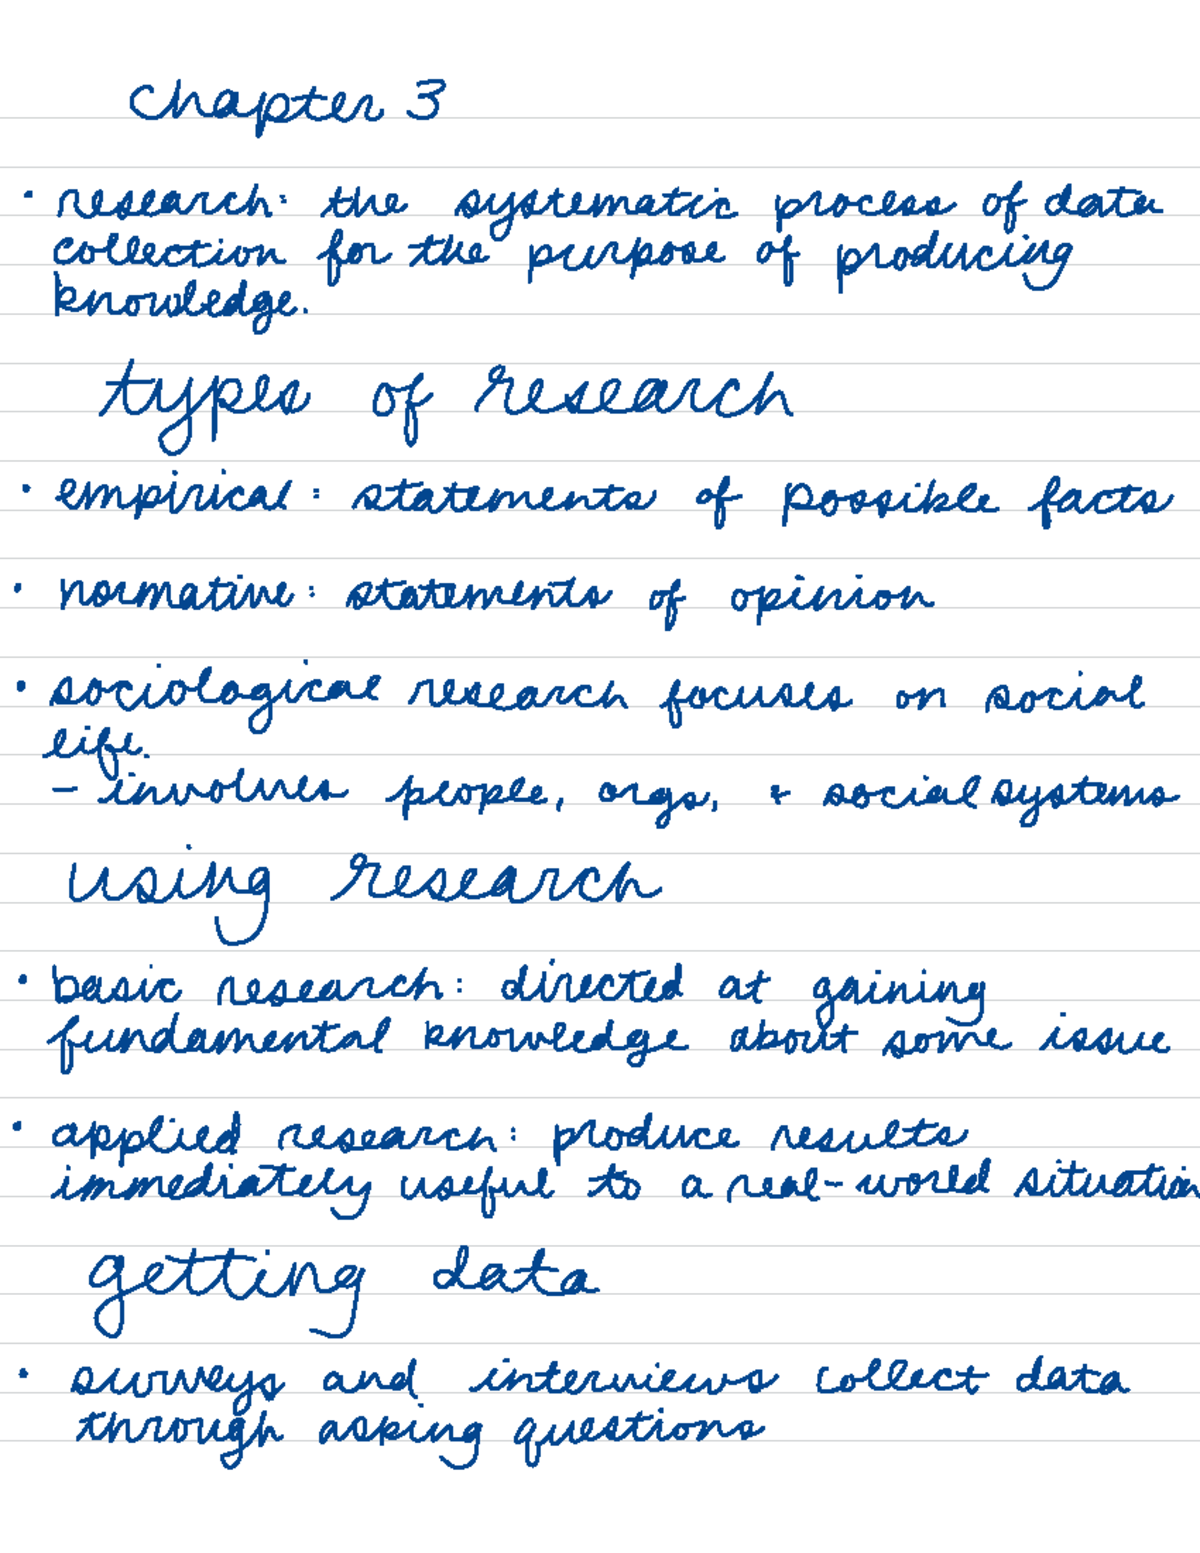 chapter 3
· research: the systematic process of data
collection for the purpose of producing
knowledge.
types of research
· empirical: statements of possible facts
· normative: statements of opinion
· sociological research focuses on social
life.
- involves people, orgs, + social systems
using research
· basic research: directed at gaining
fundamental knowledge about some issue
· applied research: produce results
immediately useful to a real-world situation
getting data
· surveys and interviews collect data
through asking questions